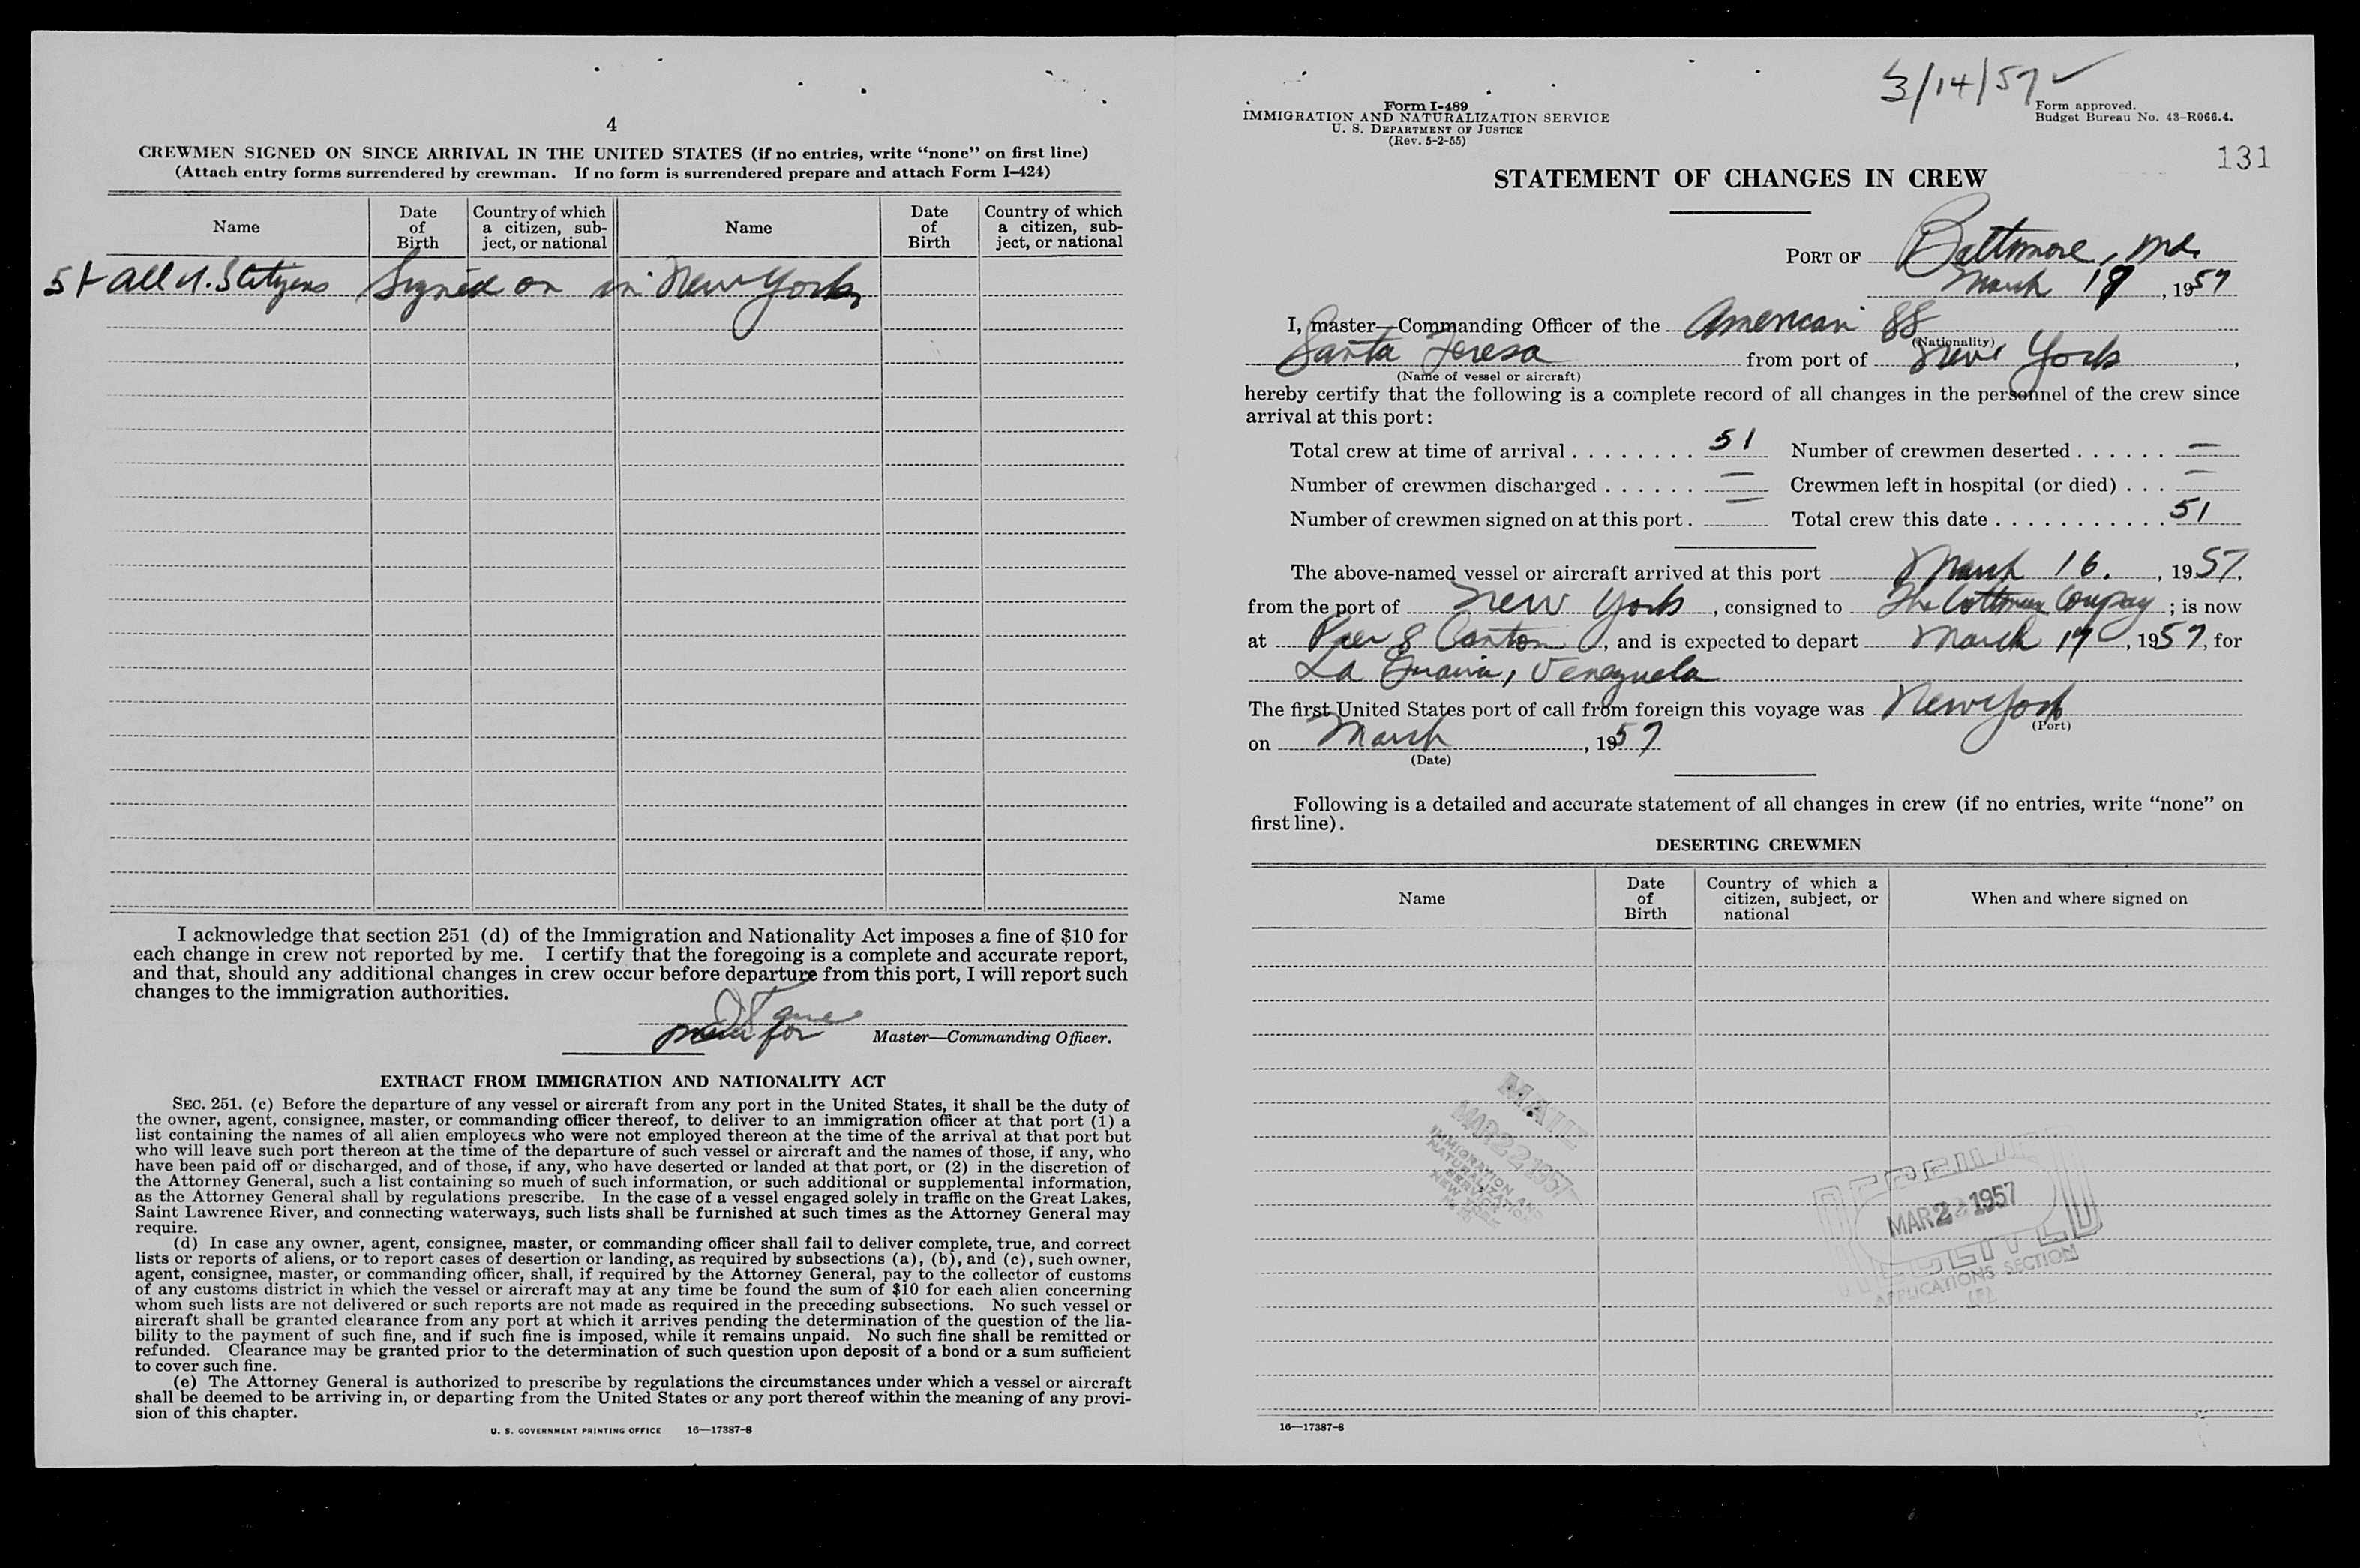 4
CREWMEN SIGNED ON SINCE ARRIVAL IN THE UNITED STATES (if no entries, write “none” on first line)
(Attach entry forms surrendered by crewman. If no form is surrendered prepare and attach Form I-424)
Name
Date of Birth
Country of which a citizen, subject, or national
Name
Date of Birth
Country of which a citizen, subject, or national
51 All U.S Citizens Signed on in New York
I acknowledge that section 251 (d) of the Immigration and Nationality Act imposes a fine of $10 for
each change in crew not reported by me. I certify that the foregoing is a complete and accurate report,
and that, should any additional changes in crew occur before departure from this port, I will report such
changes to the immigration authorities.
for
Master—Commanding Officer.
EXTRACT FROM IMMIGRATION AND NATIONALITY ACT
SEC. 251. (c) Before the departure of any vessel or aircraft from any port in the United States, it shall be the duty of
the owner, agent, consignee, master, or commanding officer thereof, to deliver to an immigration officer at that port (1) a
list containing the names of all alien employees who were not employed thereon at the time of the arrival at that port but
who will leave such port thereon at the time of the departure of such vessel or aircraft and the names of those, if any, who
have been paid off or discharged, and of those, if any, who have deserted or landed at that port, or (2) in the discretion of
the Attorney General, such a list containing so much of such information, or such additional or supplemental information,
as the Attorney General shall by regulations prescribe. In the case of a vessel engaged solely in traffic on the Great Lakes,
Saint Lawrence River, and connecting waterways, such lists shall be furnished at such times as the Attorney General may
require.
(d) In case any owner, agent, consignee, master, or commanding officer shall fail to deliver complete, true, and correct
lists or reports of aliens, or to report cases of desertion or landing, as required by subsections (a), (b), and (c), such owner,
agent, consignee, master, or commanding officer, shall, if required by the Attorney General, pay to the collector of customs
of any customs district in which the vessel or aircraft may at any time be found the sum of $10 for each alien concerning
whom such lists are not delivered or such reports are not made as required in the preceding subsections. No such vessel or
aircraft shall be granted clearance from any port at which it arrives pending the determination of the question of the lia-
bility to the payment of such fine, and if such fine is imposed, while it remains unpaid. No such fine shall be remitted or
refunded. Clearance may be granted prior to the determination of such question upon deposit of a bond or a sum sufficient
to cover such fine.
(e) The Attorney General is authorized to prescribe by regulations the circumstances under which a vessel or aircraft
shall be deemed to be arriving in, or departing from the United States or any port thereof within the meaning of any provi-
sion of this chapter.
U. S. GOVERNMENT PRINTING OFFICE 16—17387-8
3/14/57 ✓
Form I-489
IMMIGRATION AND NATURALIZATION SERVICE
U. S. DEPARTMENT OF JUSTICE
(Rev. 5-2-55)
Form approved.
Budget Bureau No. 43-R066.4.
131
STATEMENT OF CHANGES IN CREW
PORT OF Baltimore, Md.
March 19, 1957
I, master—Commanding Officer of the American SS
(Nationality)
Santa Teresa from port of New York,
(Name of vessel or aircraft)
hereby certify that the following is a complete record of all changes in the personnel of the crew since
arrival at this port:
Total crew at time of arrival ........ 51 Number of crewmen deserted ...... —
Number of crewmen discharged ...... — Crewmen left in hospital (or died) ... —
Number of crewmen signed on at this port. — Total crew this date ........... 51
The above-named vessel or aircraft arrived at this port March 16, 1957,
from the port of New York, consigned to The Cottman Company; is now
at Pier 8 Canton, and is expected to depart March 19, 1957, for
La Guaira, Venezuela
The first United States port of call from foreign this voyage was New York
(Port)
on March, 1957
(Date)
Following is a detailed and accurate statement of all changes in crew (if no entries, write “none” on
first line).
DESERTING CREWMEN
Name
Date of Birth
Country of which a citizen, subject, or national
When and where signed on
MAIL
MAR 22 1957
IMMIGRATION AND
NATURALIZATION
SERVICE
NEW YORK
RECEIVED
MAR 22 1957
APPLICATIONS SECTION
16—17387-8